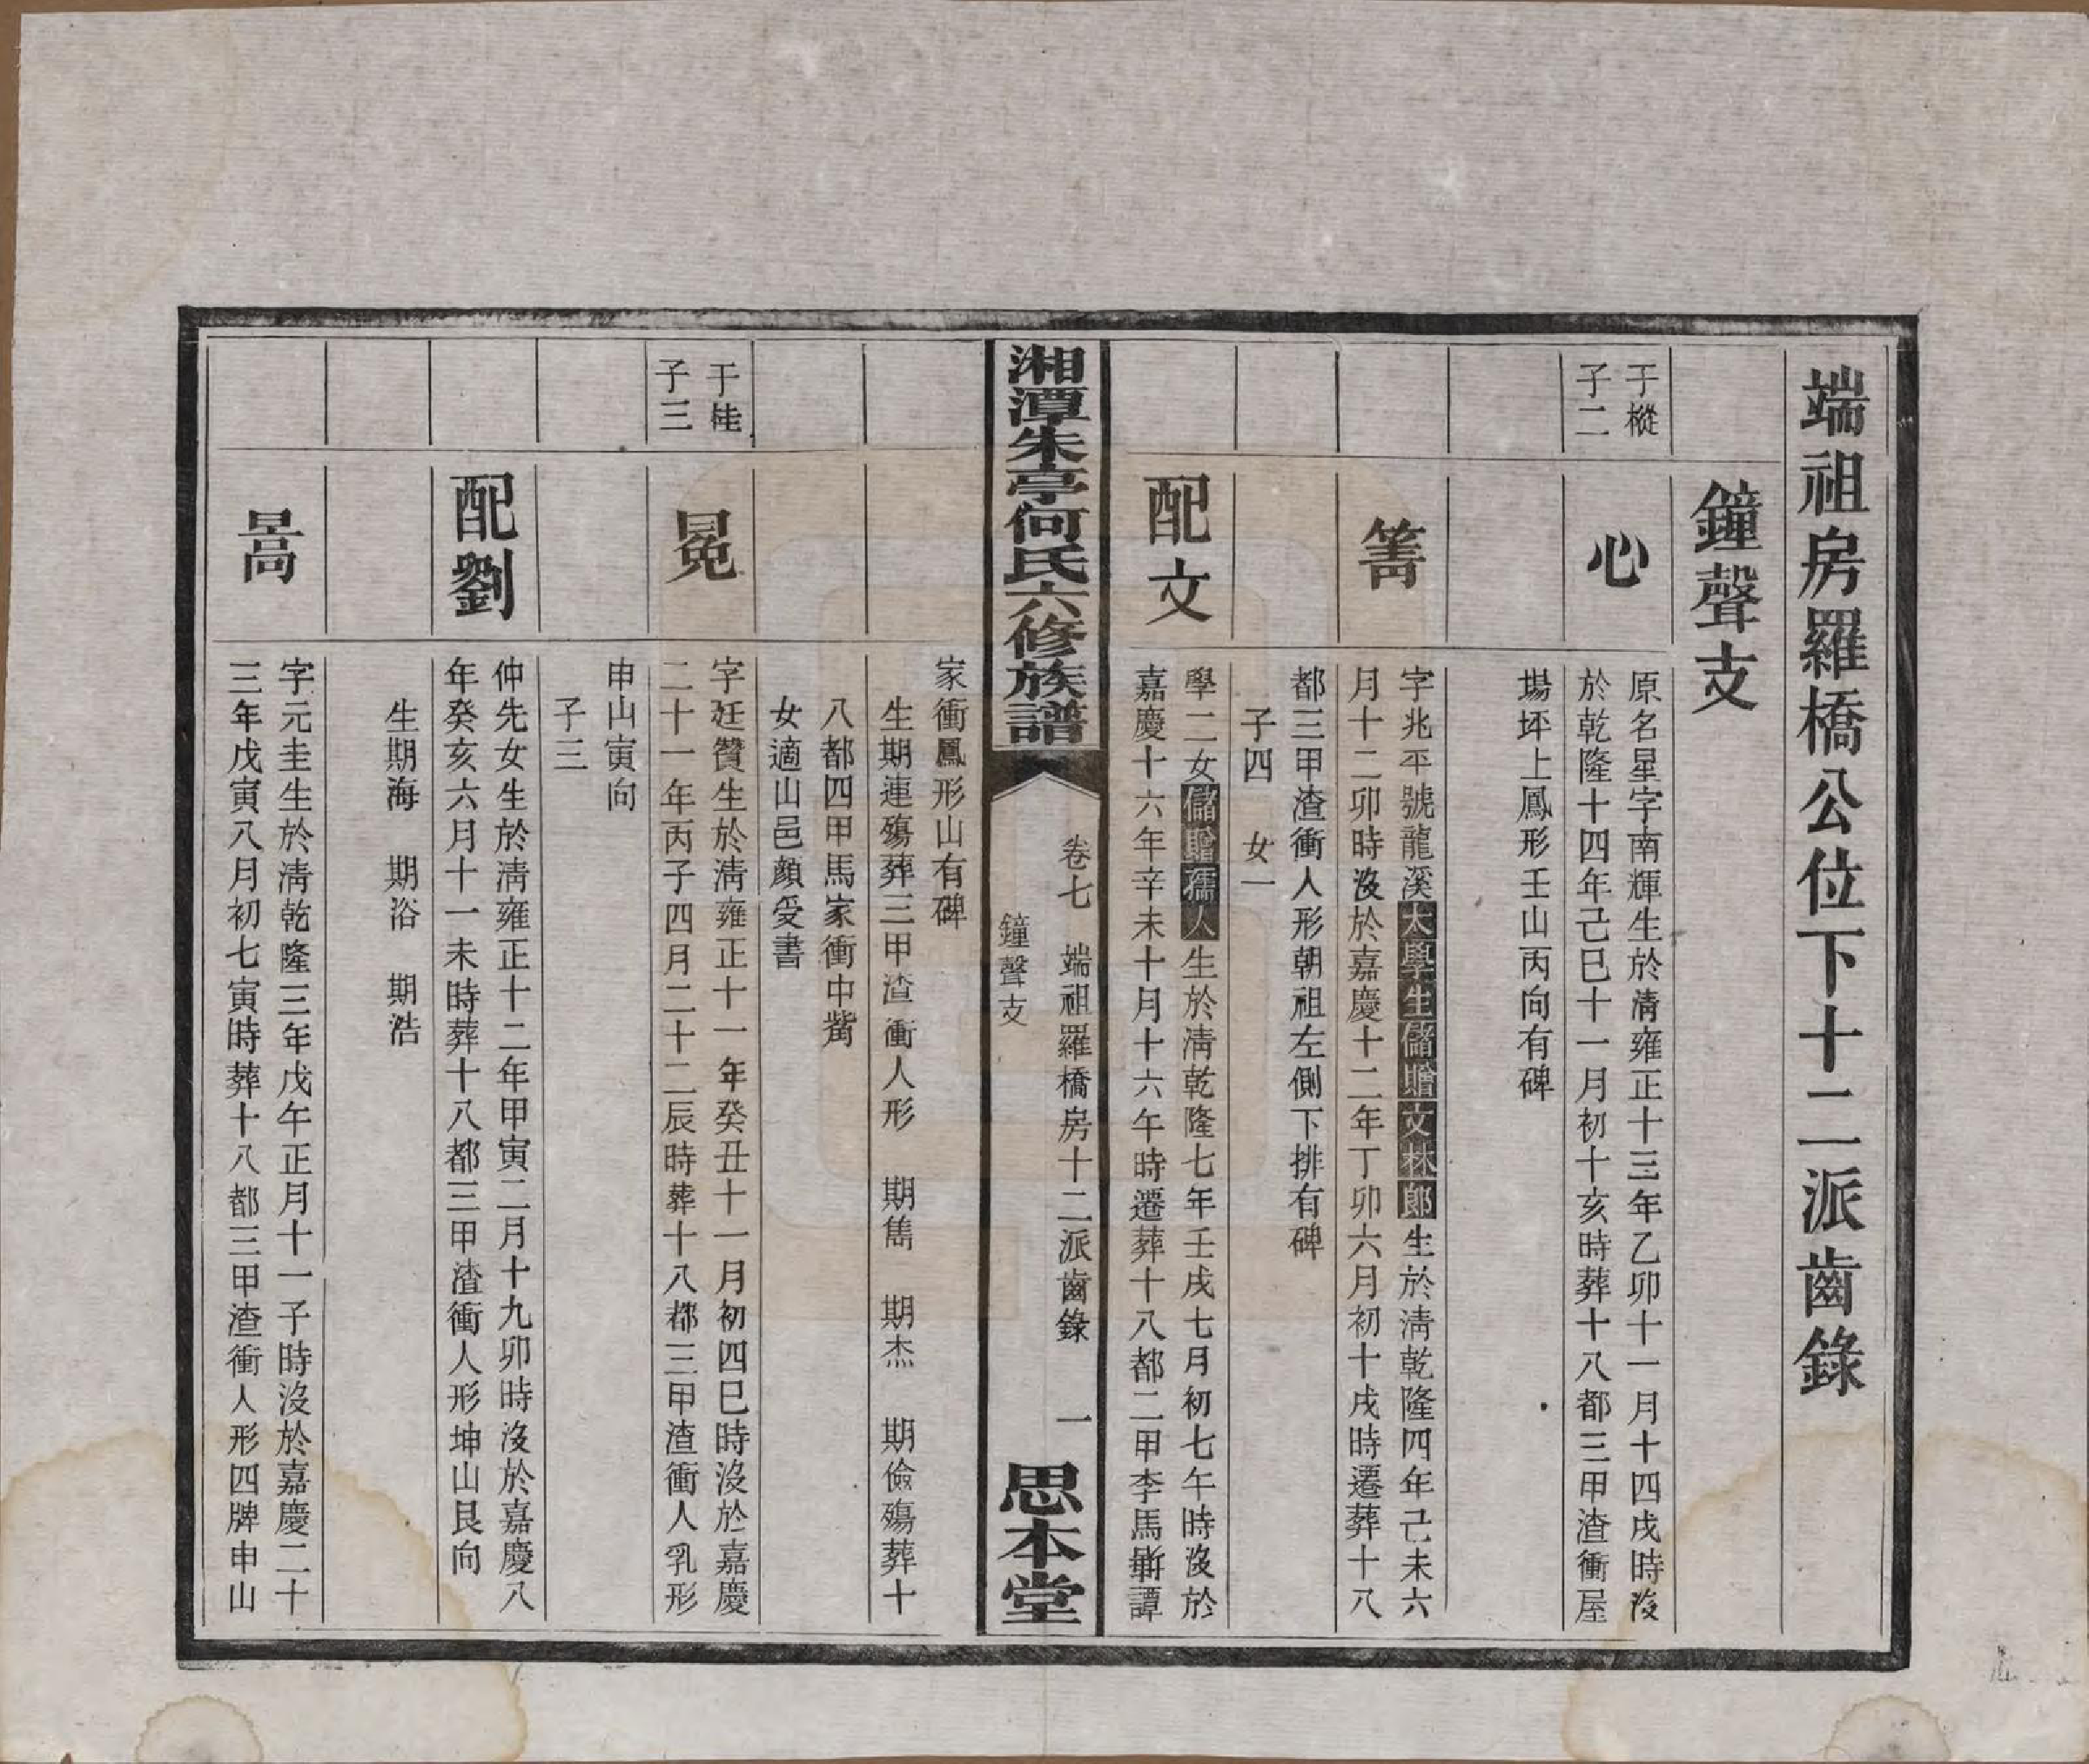 端祖房羅橋公位下十二派齒錄
鐘聲支
于樅
子二
心
原名星字南輝生於清雍正十三年乙卯十一月十四戌時沒
於乾隆十四年己巳十一月初十亥時葬十八都三甲渣衝屋
場坪上鳳形壬山丙向有碑
篙
字兆平號龍溪太學生儲贈文林郎生於清乾隆四年己未六
月十二卯時沒於嘉慶十二年丁卯六月初十戌時遷葬十八
都三甲渣衝人形朝祖左側下排有碑
子四 女一
配文
學二女儲贈孺人生於清乾隆七年壬戌七月初七午時沒於
嘉慶十六年辛未十月十六午時遷葬十八都二甲李馬衝譚
湘潭朱亭何氏六修族譜
卷七 端祖羅橋房十二派齒錄 一
鐘聲支
思本堂
家衝鳳形山有碑
生期連殤葬三甲渣衝人形 期雋 期杰 期儉殤葬十
八都四甲馬家衝中嘴
女適山邑顏受書
于桂
子三
冕
字廷贊生於清雍正十一年癸丑十一月初四巳時沒於嘉慶
二十一年丙子四月二十二辰時葬十八都三甲渣衝人乳形
申山寅向
子三
配劉
仲先女生於清雍正十二年甲寅二月十九卯時沒於嘉慶八
年癸亥六月十一未時葬十八都三甲渣衝人形坤山艮向
生期海 期浴 期浩
暠
字元圭生於清乾隆三年戊午正月十一子時沒於嘉慶二十
三年戊寅八月初七寅時葬十八都三甲渣衝人形四牌申山